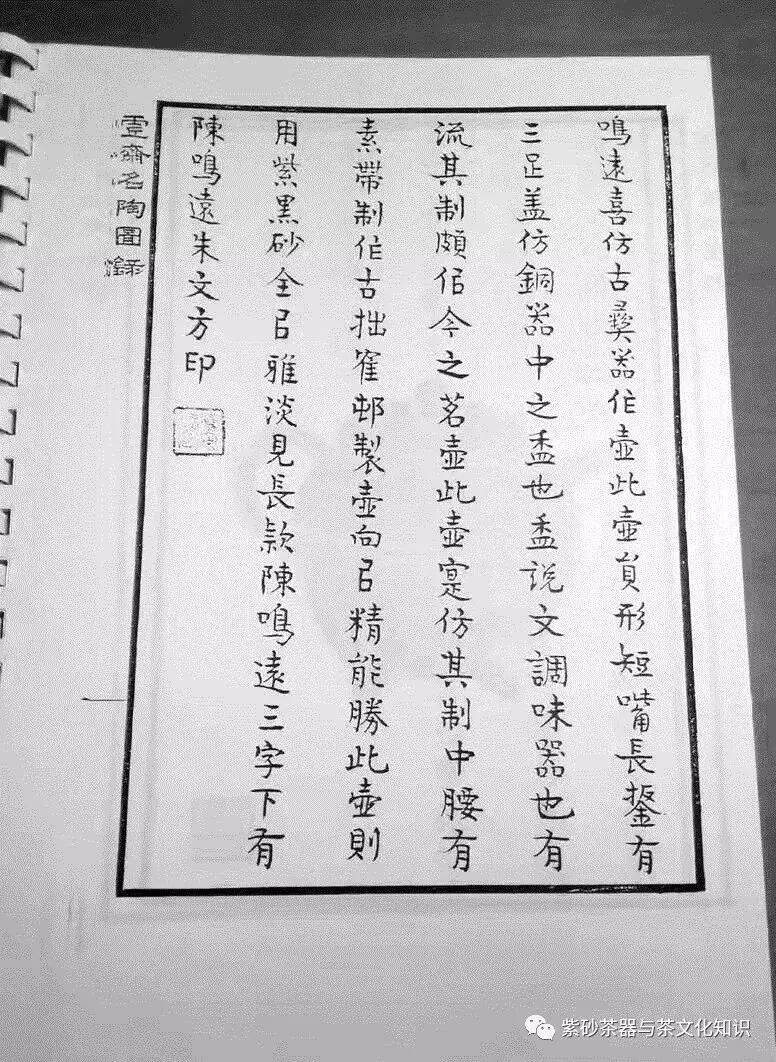 鳴遠喜仿古彝器作壺此壺員形短嘴長鋬有
三足盖仿銅器中之盉也盉説文調味器也有
流其制頗佀今之茗壺此壺寔仿其制中腰有
素帶制作古拙寉邨製壺向㠯精能勝此壺則
用紫黑砂全㠯雅淡見長款陳鳴遠三字下有
陳鳴遠朱文方印
霝齋名陶圖錄
紫砂茶器与茶文化知识